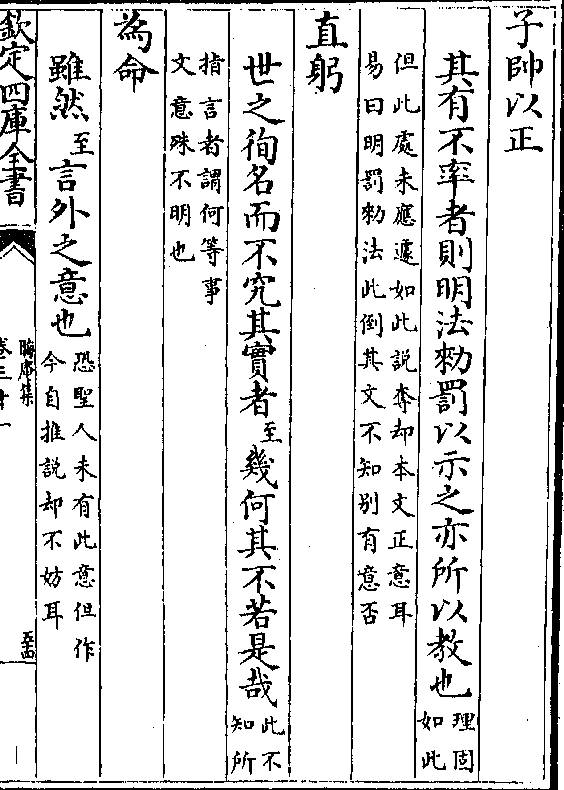 子帥以正
其有不率者則明法勑罰以示之亦所以教也理固如此
但此處未應遽如此説奪却本文正意耳
易曰明罰勑法此倒其文不知别有意否
直躬
世之徇名而不究其實者至幾何其不若是哉此不知所
指言者謂何等事
文意殊不明也
為命
雖然至言外之意也恐聖人未有此意但作
今自推説却不妨耳
欽定四庫全書
晦庵集
卷三十一